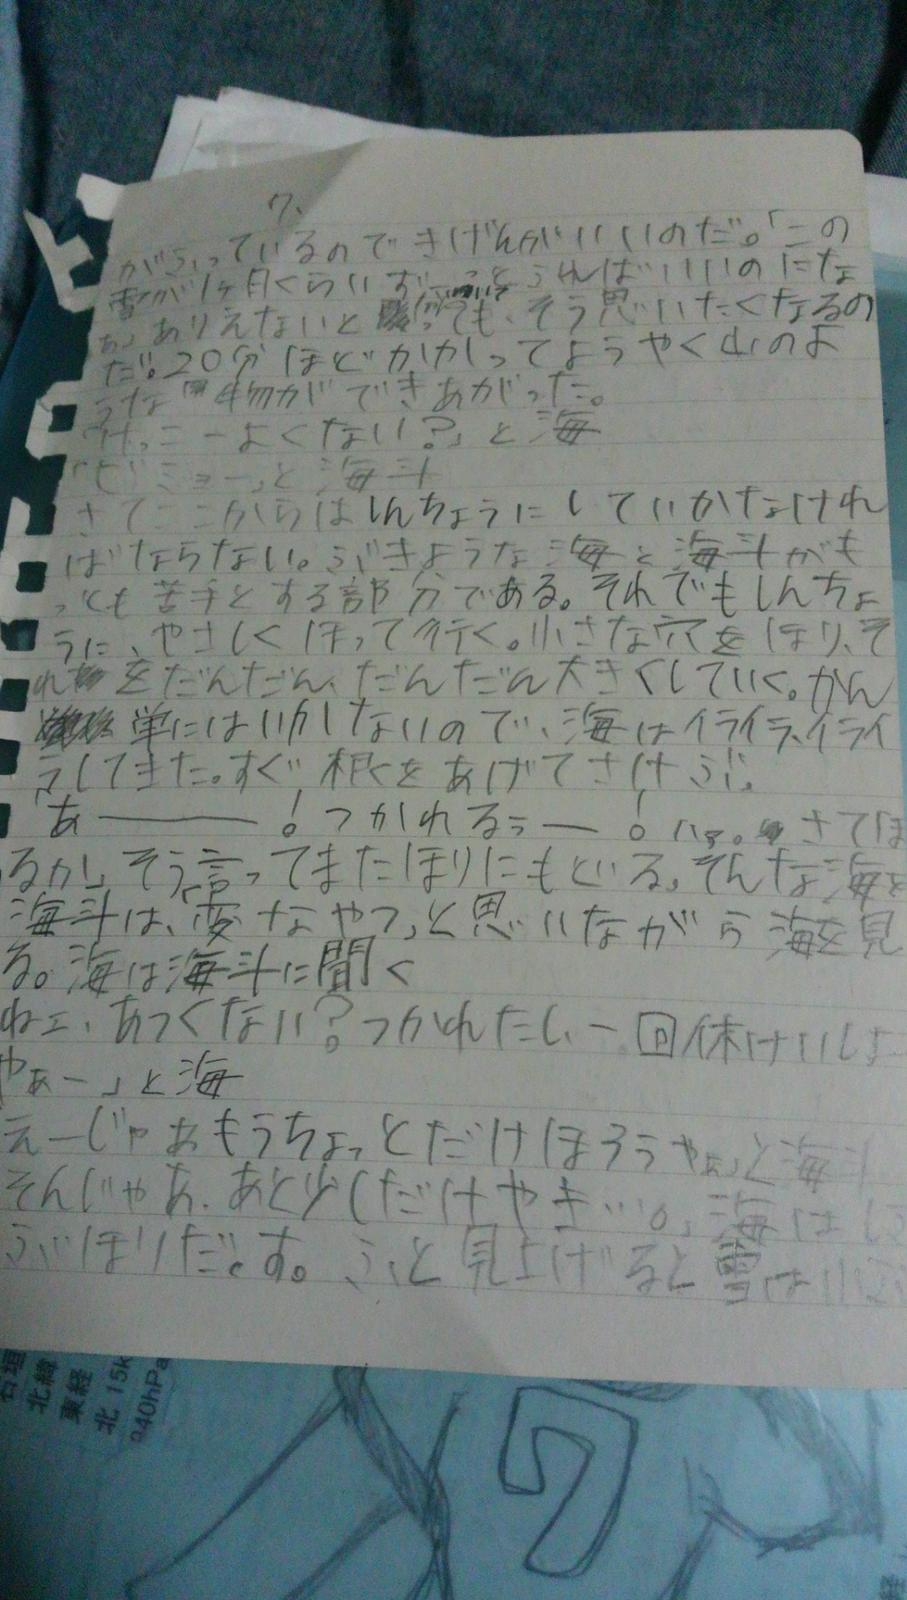 7、
がふっているのできげんがいいのだ。「この
雪が1ヶ月くらいずっとふればいいのにな
ぁ」ありえないと っても、そう思いたくなるの
だ。20分ほどかかってようやく山のよ
うな 物ができあがった。
「けっこーよくない?」と海
「ビミョー」と海斗
さてここからはしんちょうにしていかなけれ
ばならない。ぶきような海と海斗がも
っとも苦手とする部分である。それでもしんちょ
うに、やさしくほって行く。小さな穴をほり、そ
れ をだんだん、だんだん大きくしていく。かん
単にはいかしないので、海はイライラ、イライ
ラしてきた。すぐ根をあげてさけぶ。
「あー――!つかれるぅー!ハァ。 さてほ
るか」そう言ってまたほりにもどる。そんな海を
海斗は、「変なやつ」と思いながら海を見
る。海は海斗に聞く
ねェ、あつくない?つかれたしぃー回休けいしよ
やぁー」と海
えーじゃぁもうちょっとだけほろうやぁ」と海斗
そんじゃあ、あと少しだけやき…。」海は
ぶほりだす。ふと見上げると雪は
石垣
北緯
東経
北 15k
940hPa